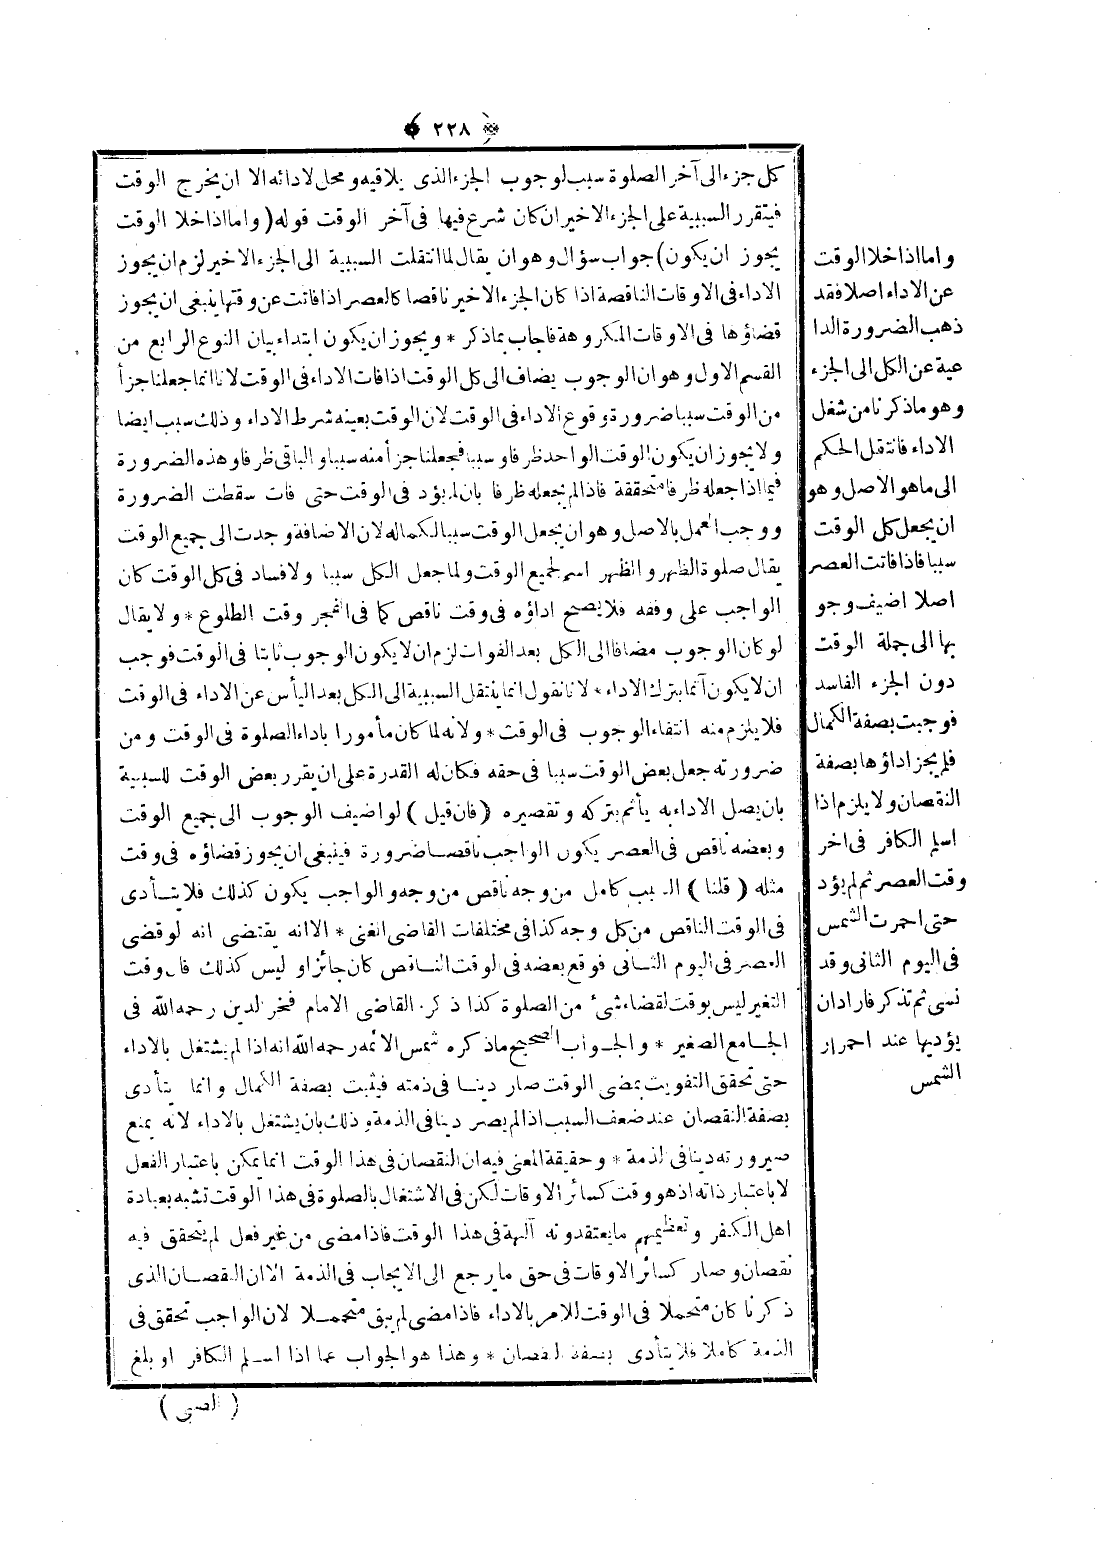 ﴿ ٢٢٨ ﴾
كل جزء الى آخر الصلوة سبب لوجوب الجزء الذى يلاقيه ومحل لادائه الا ان يخرج الوقت
فيتقرر السببية على الجزء الاخير ان كان شرع فيها فى آخر الوقت قوله ( واما اذا خلا الوقت
يجوز ان يكون ) جواب سؤال وهو ان يقال لما انتقلت السببية الى الجزء الاخير لزم ان يجوز
الاداء فى الاوقات الناقصة اذا كان الجزء الاخير ناقصا كالعصر اذا فاتت عن وقتها ينبغى ان يجوز
قضاؤها فى الاوقات المكروهة فاجاب بما ذكر * ويجوز ان يكون ابتداء بيان النوع الرابع من
القسم الاول وهو ان الوجوب يضاف الى كل الوقت اذا فات الاداء فى الوقت لانا انما جعلنا جزأ
من الوقت سببا ضرورة وقوع الاداء فى الوقت لان الوقت بعينه شرط الاداء وذلك سبب ايضا
ولا يجوز ان يكون الوقت الواحد ظرفا وسببا فجعلنا جزأ منه سببا والباقى ظرفا وهذه الضرورة
فيما اذا جعله ظرفا متحققة فاذا لم يجعله ظرفا بان لم يؤد فى الوقت حتى فات سقطت الضرورة
ووجب العمل بالاصل وهو ان يجعل الوقت سببا لكماله لان الاضافة وجدت الى جميع الوقت
يقال صلوة الظهر والظهر اسم لجميع الوقت ولما جعل الكل سببا ولا فساد فى كل الوقت كان
الواجب على وفقه فلا يصح اداؤه فى وقت ناقص كما فى الفجر وقت الطلوع * ولا يقال
لو كان الوجوب مضافا الى الكل بعد الفوات لزم ان لا يكون الوجوب ثابتا فى الوقت فوجب
ان لا يكون آثما بترك الاداء * لانا نقول انما ينتقل السببية الى الكل بعد اليأس عن الاداء فى الوقت
فلا يلزم منه انتفاء الوجوب فى الوقت * ولانه لما كان مأمورا باداء الصلوة فى الوقت ومن
ضرورته جعل بعض الوقت سببا فى حقه فكان له القدرة على ان يقرر بعض الوقت للسببية
بان يصل الاداء به يأثم بتركه وتقصيره ( فان قيل ) لو اضيف الوجوب الى جميع الوقت
وبعضه ناقص فى العصر يكون الواجب ناقصا ضرورة فينبغى ان يجوز قضاؤه فى وقت
مثله ( قلنا ) السبب كامل من وجه ناقص من وجه والواجب يكون كذلك فلا يتأدى
فى الوقت الناقص من كل وجه كذا فى مختلفات القاضى الغنى * الا انه يقتضى انه لو قضى
العصر فى اليوم الثانى فوقع بعضه فى الوقت الناقص كان جائزا وليس كذلك فان وقت
التغير ليس بوقت لقضاء شئ من الصلوة كذا ذكره القاضى الامام فخر الدين رحمه الله فى
الجامع الصغير * والجواب الصحيح ما ذكره شمس الائمه رحمه الله انه اذا لم يشتغل بالاداء
حتى تحقق التفويت بمضى الوقت صار دينا فى ذمته فيثبت بصفة الكمال وانما يتأدى
بصفة النقصان عند ضعف السبب اذا لم يصر دينا فى الذمة وذلك بان يشتغل بالاداء لانه يمنع
صيرورته دينا فى الذمة * وحقيقة المعنى فيه ان النقصان فى هذا الوقت انما يمكن باعتبار الفعل
لا باعتبار ذاته اذ هو وقت كسائر الاوقات لكن فى الاشتغال بالصلوة فى هذا الوقت تشبه بعبادة
اهل الكفر وتعظيمهم ما يعتقدونه آلهة فى هذا الوقت فاذا مضى من غير فعل لم يتحقق فيه
نقصان وصار كسائر الاوقات فى حق ما يرجع الى الايجاب فى الذمة الا ان النقصان الذى
ذكرنا كان متحملا فى الوقت للامر بالاداء فاذا مضى لم يبق متحملا لان الواجب تحقق فى
الذمة كاملا فلا يتأدى بصفة النقصان * وهذا هو الجواب عما اذا اسلم الكافر او بلغ
( الصبى )
واما اذا خلا الوقت
عن الاداء اصلا فقد
ذهب الضرورة الدا
عية عن الكل الى الجزء
وهو ما ذكرنا من شغل
الاداء فانتقل الحكم
الى ما هو الاصل وهو
ان يجعل كل الوقت
سببا فاذا فاتت العصر
اصلا اضيف وجو
بها الى جملة الوقت
دون الجزء الفاسد
فوجبت بصفة الكمال
فلم يجز اداؤها بصفة
النقصان ولا يلزم اذا
اسلم الكافر فى اخر
وقت العصر ثم لم يؤد
حتى احمرت الشمس
فى اليوم الثانى وقد
نسى ثم تذكر فاراد ان
يؤديها عند احمرار
الشمس